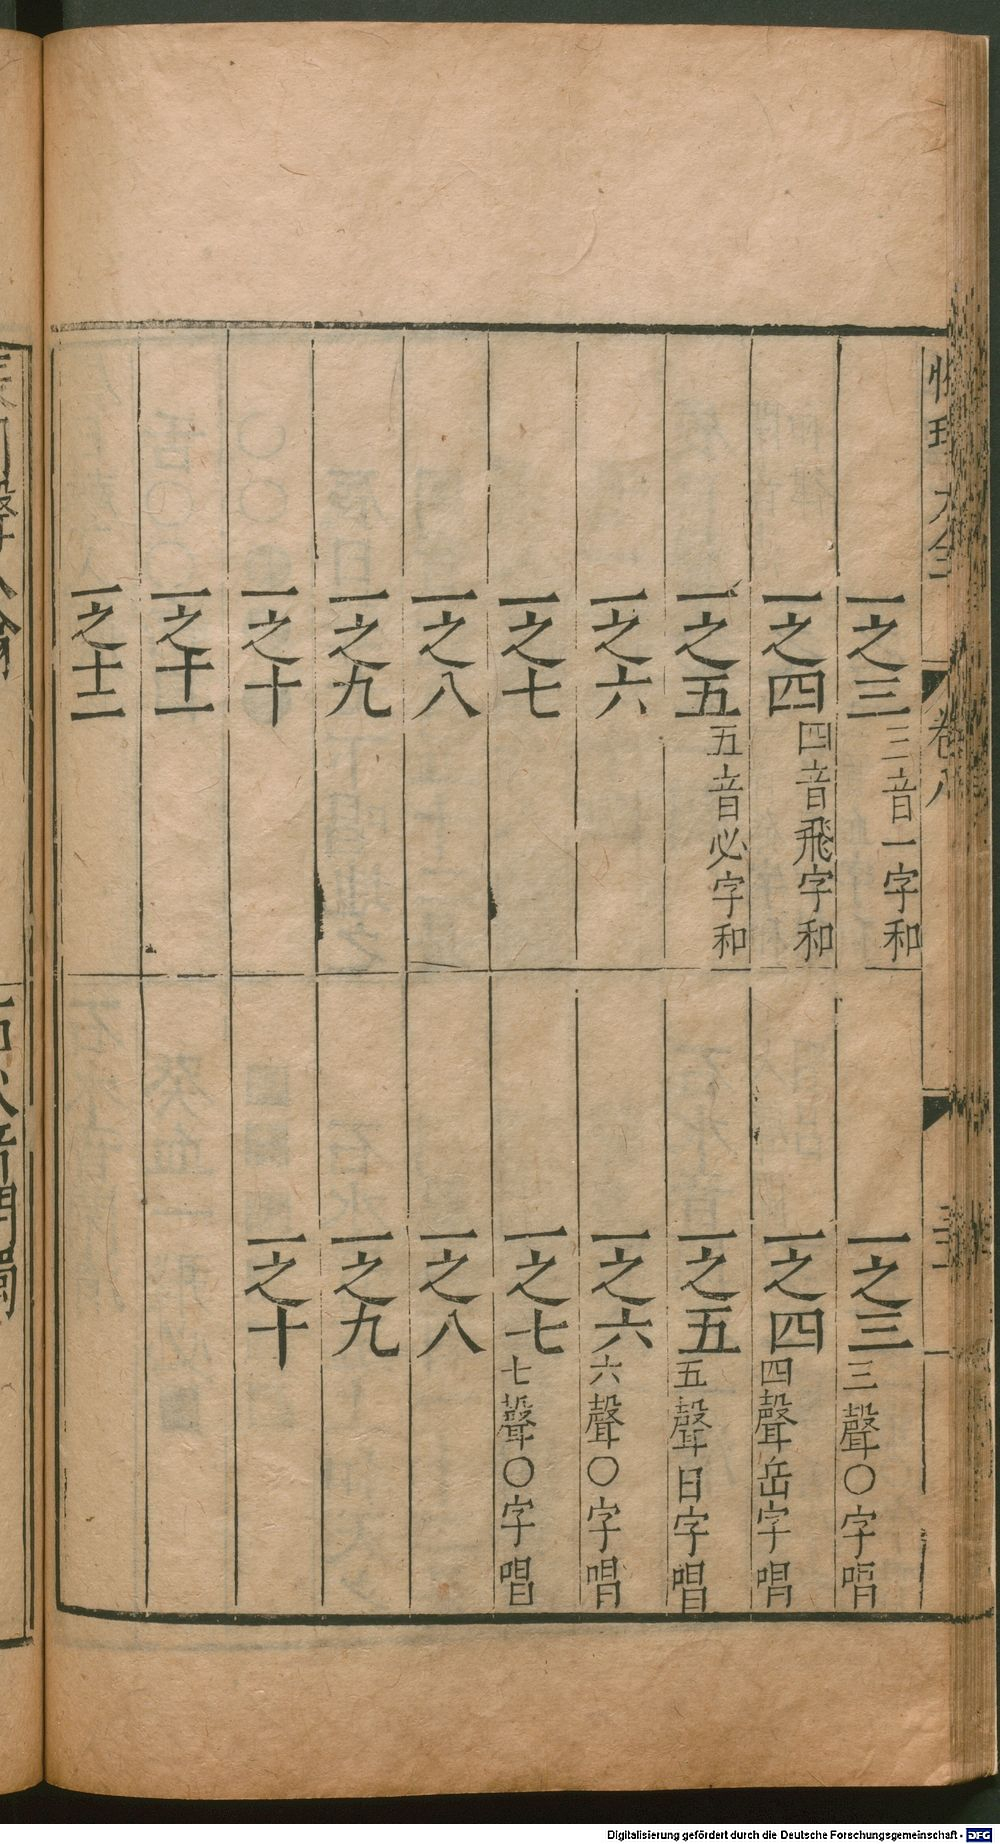 性理大全
卷八
一之三 三音一字和
一之四 四音飛字和
一之五 五音必字和
一之六
一之七
一之八
一之九
一之十
一之十一
一之十二
一之三 三聲〇字唱
一之四 四聲岳字唱
一之五 五聲日字唱
一之六 六聲〇字唱
一之七 七聲〇字唱
一之八
一之九
一之十
Digitalisierung gefördert durch die Deutsche Forschungsgemeinschaft - DFG